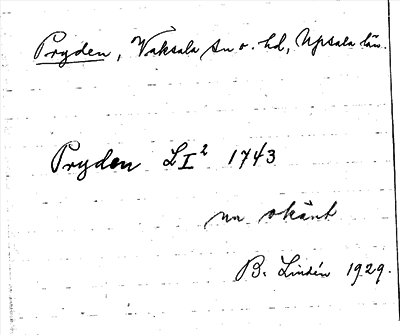 Pryden, Vaksala sn o. hd, Upsala län.
Pryden LI² 1743
nu okänt
B. Lindén 1929.